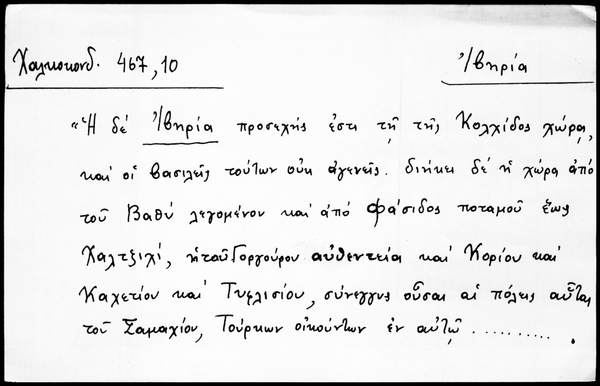 Χαλκοκονδ. 467,10 Ἰβηρία
«Ἡ δέ Ἰβηρία προσεχής ἐστι τῇ τῆς Κολχίδος χώρᾳ,
καί οἱ βασιλεῖς τούτων οὐκ ἀγενεῖς. διήκει δέ ἡ χώρα ἀπό
τοῦ Βαθύ λεγομένου καί ἀπό Φάσιδος ποταμοῦ ἕως
Χαλτζιχί, ἡ τοῦ Γοργούρου αὐθεντεία καί Κορίου καί
Καχετίου καί Τυφλισίου, σύνεγγυς οὖσαι αἱ πόλεις αὗται
τοῦ Σαμαχίου, Τούρκων οἰκούντων ἐν αὐτῷ ..........